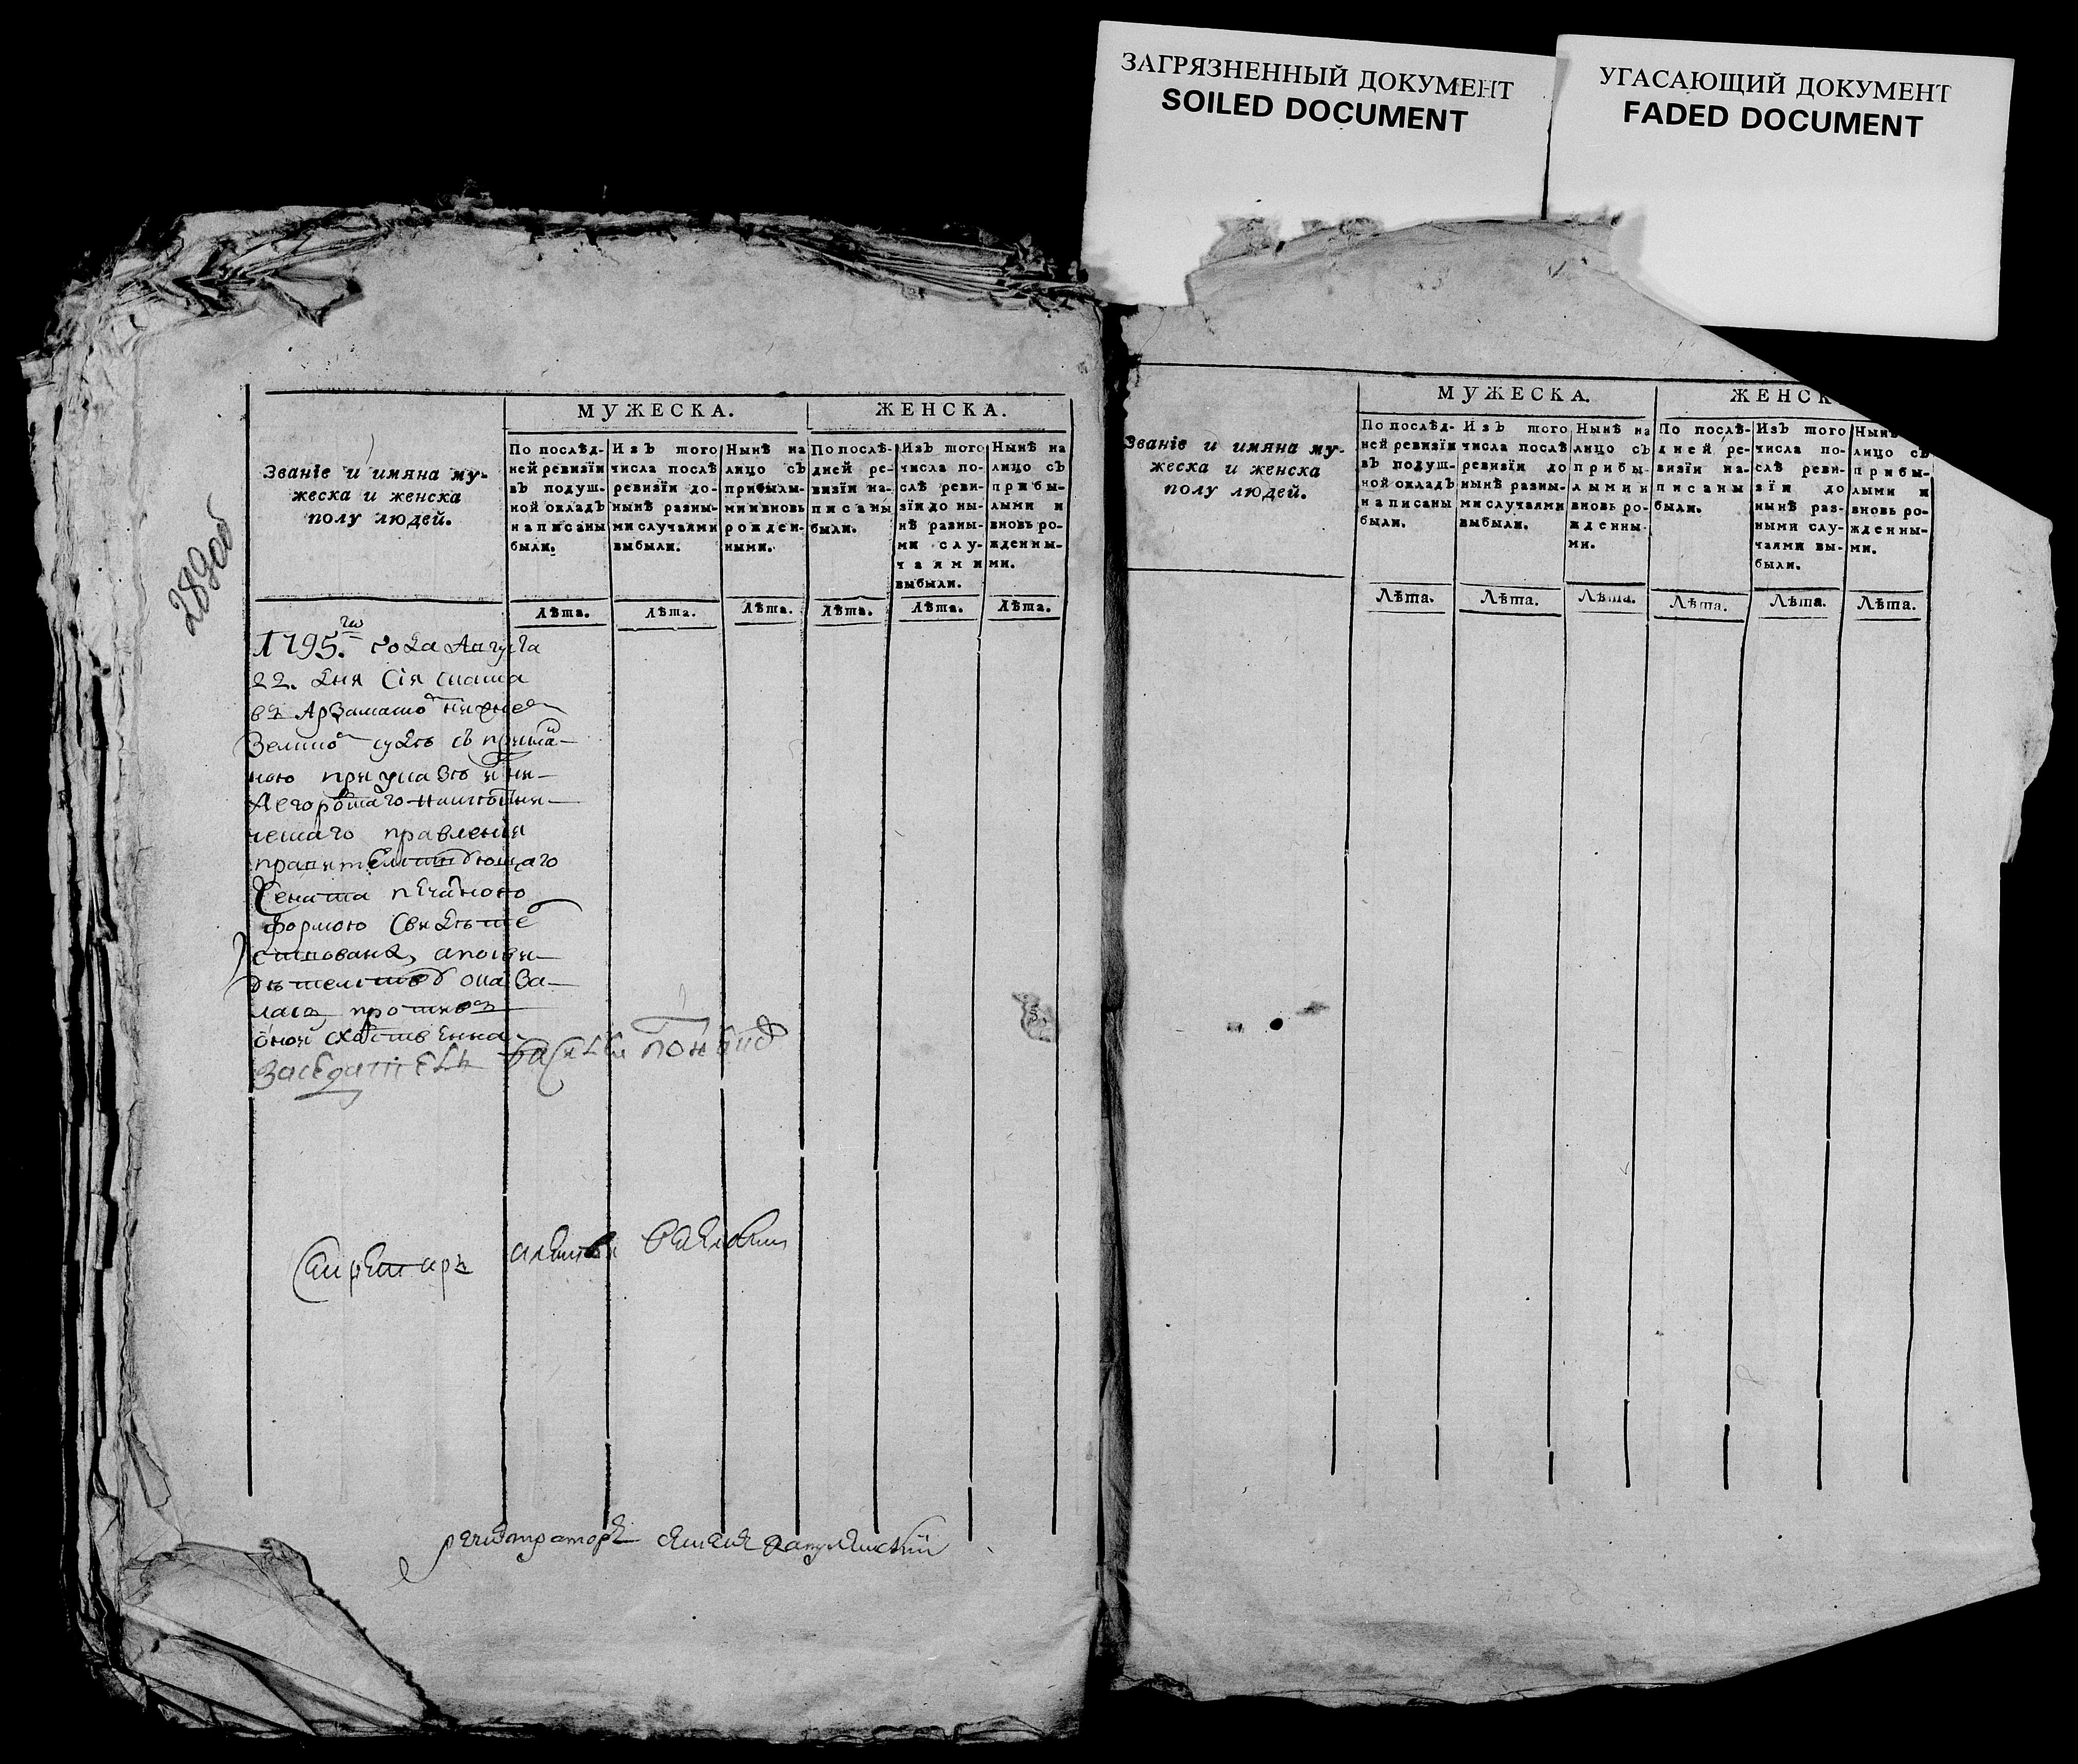 ЗАГРЯЗНЕННЫЙ ДОКУМЕНТ
SOILED DOCUMENT
УГАСАЮЩИЙ ДОКУМЕНТ
FADED DOCUMENT
289об
МУЖЕСКА.
ЖЕНСКА.
Званїе и имяна му-
жеска и женска
полу людей.
По послѣд-
ней ревизїи
въ подуш-
ной окладъ
написаны
были.
Изъ того
числа послѣ
ревизїи до-
нынѣ разны-
ми случаями
выбыли.
Нынѣ на
лицо съ
прибылы-
ми и вновь
рожден-
ными.
По послѣ-
дней ре-
визїи на-
писаны
были.
Изъ того
числа по-
слѣ реви-
зїи до ны-
нѣ разны-
ми слу-
чаями
выбыли.
Нынѣ на
лицо съ
прибы-
лыми и
вновь ро-
жденны-
ми.
Лѣта. Лѣта. Лѣта. Лѣта. Лѣта. Лѣта.
1795.го года Августа
22. дня Сiя сказка
въ Арзамаско нижне
Земско судѣ съ присла-
ною при указѣ изни-
жегороцкаго намѣстни-
ческаго правления
правителствующаго
Сената печатною
формою свидѣте
лствована, а по сви-
дѣтелству оказа-
лась противъ
оной сходственна
Заседатель
Секретарь
регистраторъ
МУЖЕСКА.
ЖЕНСК
Званїе и имяна му-
жеска и женска
полу людей.
По послѣд-
ней ревизїи
въ подуш-
ной окладъ
написаны
были.
Изъ того
числа послѣ
ревизїи до
нынѣ разны-
ми случаями
выбыли.
Нынѣ на
лицо съ
прибы-
лыми и
вновь ро-
жденны-
ми.
По послѣ-
дней ре-
визїи на-
писаны
были.
Изъ того
числа по-
слѣ реви-
зїи до
нынѣ раз-
ными слу-
чаями вы-
были.
Нынѣ
лицо съ
прибы-
лыми и
вновь ро-
жденны-
ми.
Лѣта. Лѣта. Лѣта. Лѣта. Лѣта. Лѣта.